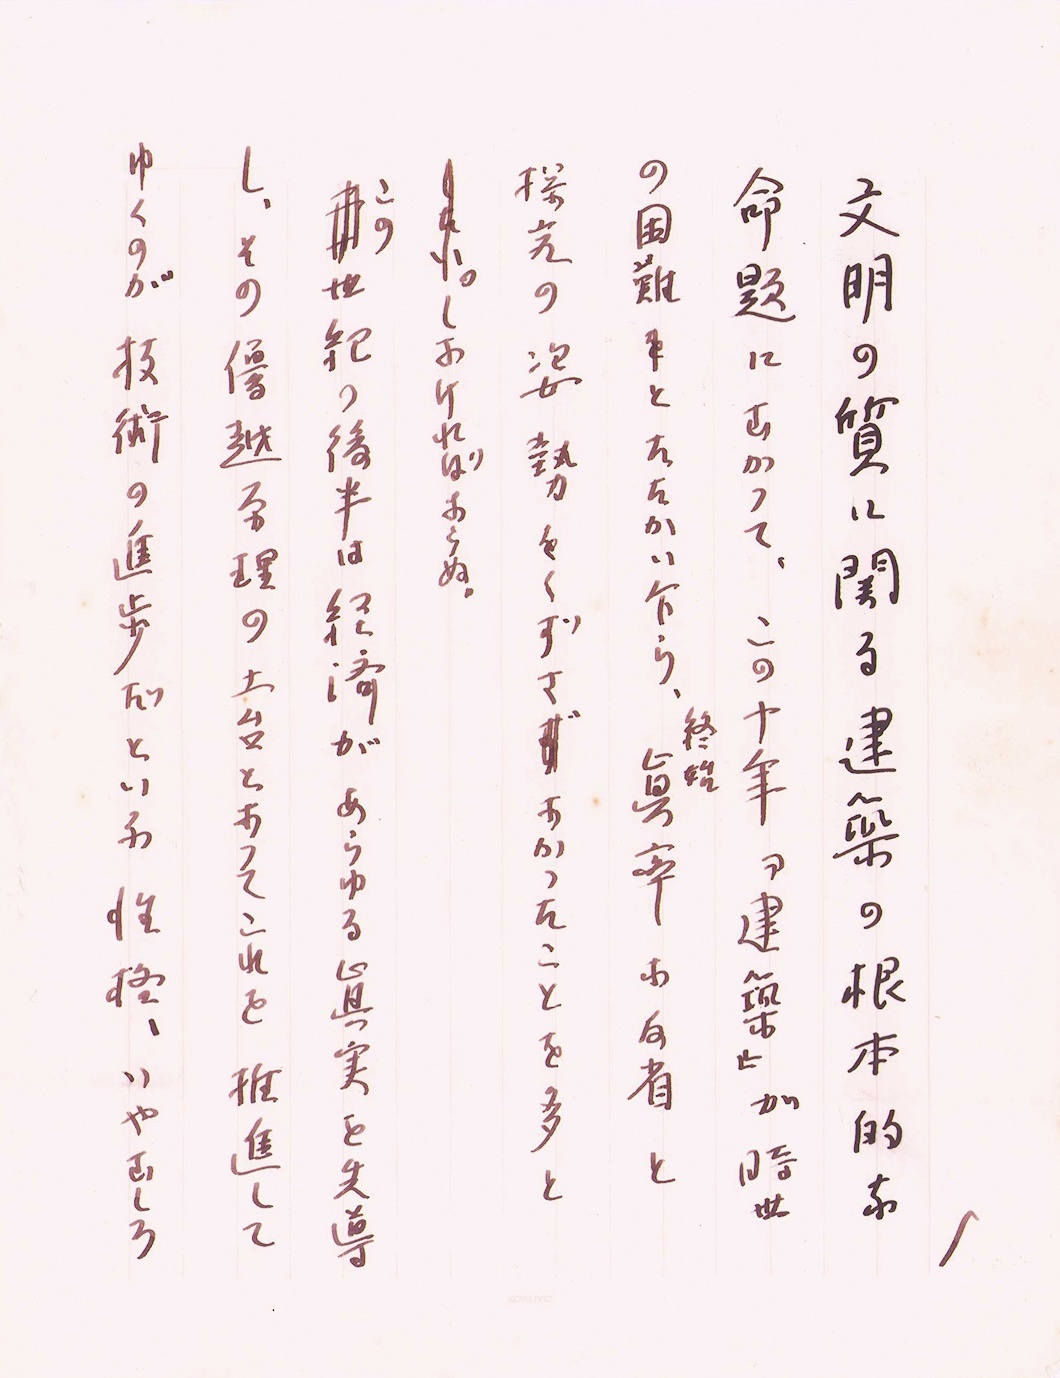 文明の質に関る建築の根本的な
命題にむかって、この十年『建築』が時世
の困難事とたたかい乍ら、終始眞率な反省と
探究の姿勢をくずさなかったことを多と
しなければならぬ。
この世紀の後半は経済があらゆる眞実を先導
し、その優越原理の土台となってこれを推進して
ゆくのが技術の進歩だという性格、いやむしろ
KOKUYO